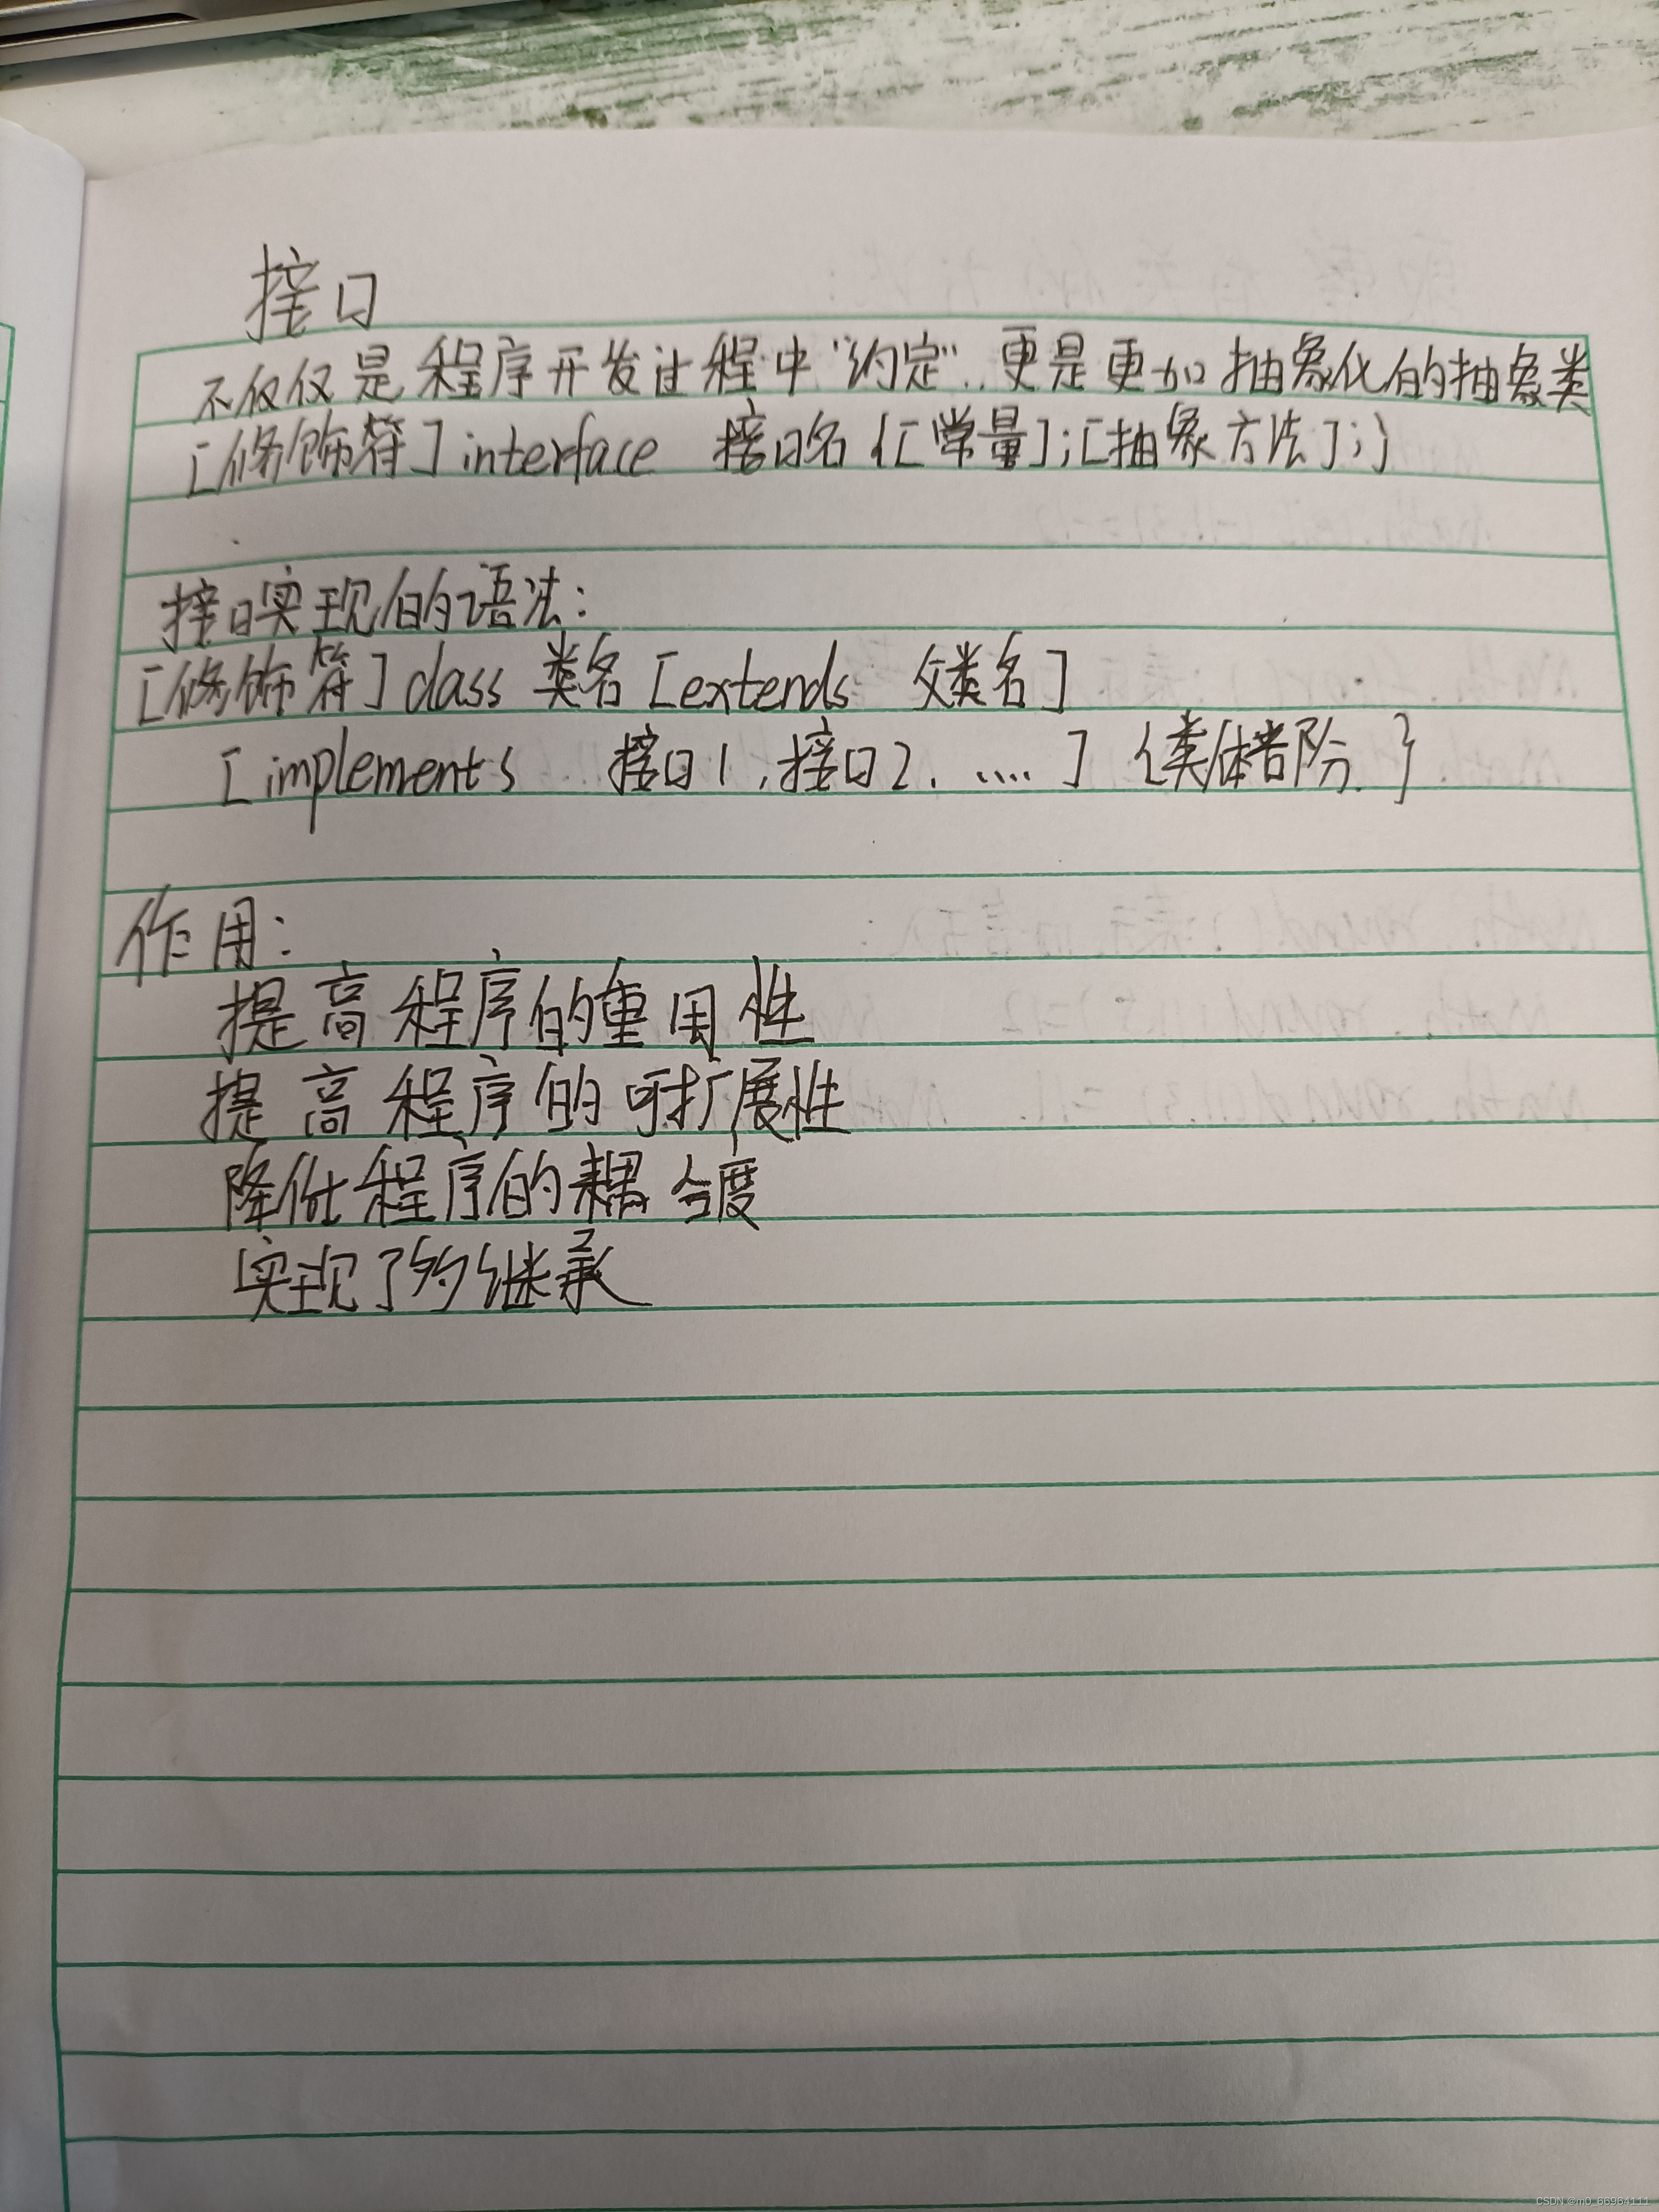 接口
不仅仅是程序开发过程中"约定"..更是更加抽象化的抽象类
[修饰符]interface 接口名{[常量];[抽象方法];}
接口实现的语法:
[修饰符]class 类名[extends 父类名]
[implements 接口1,接口2,.....] {类体部分.}
作用:
提高程序的重用性
提高程序的可扩展性
降低程序的耦合度
实现了的继承
CSDN @m0_66984111